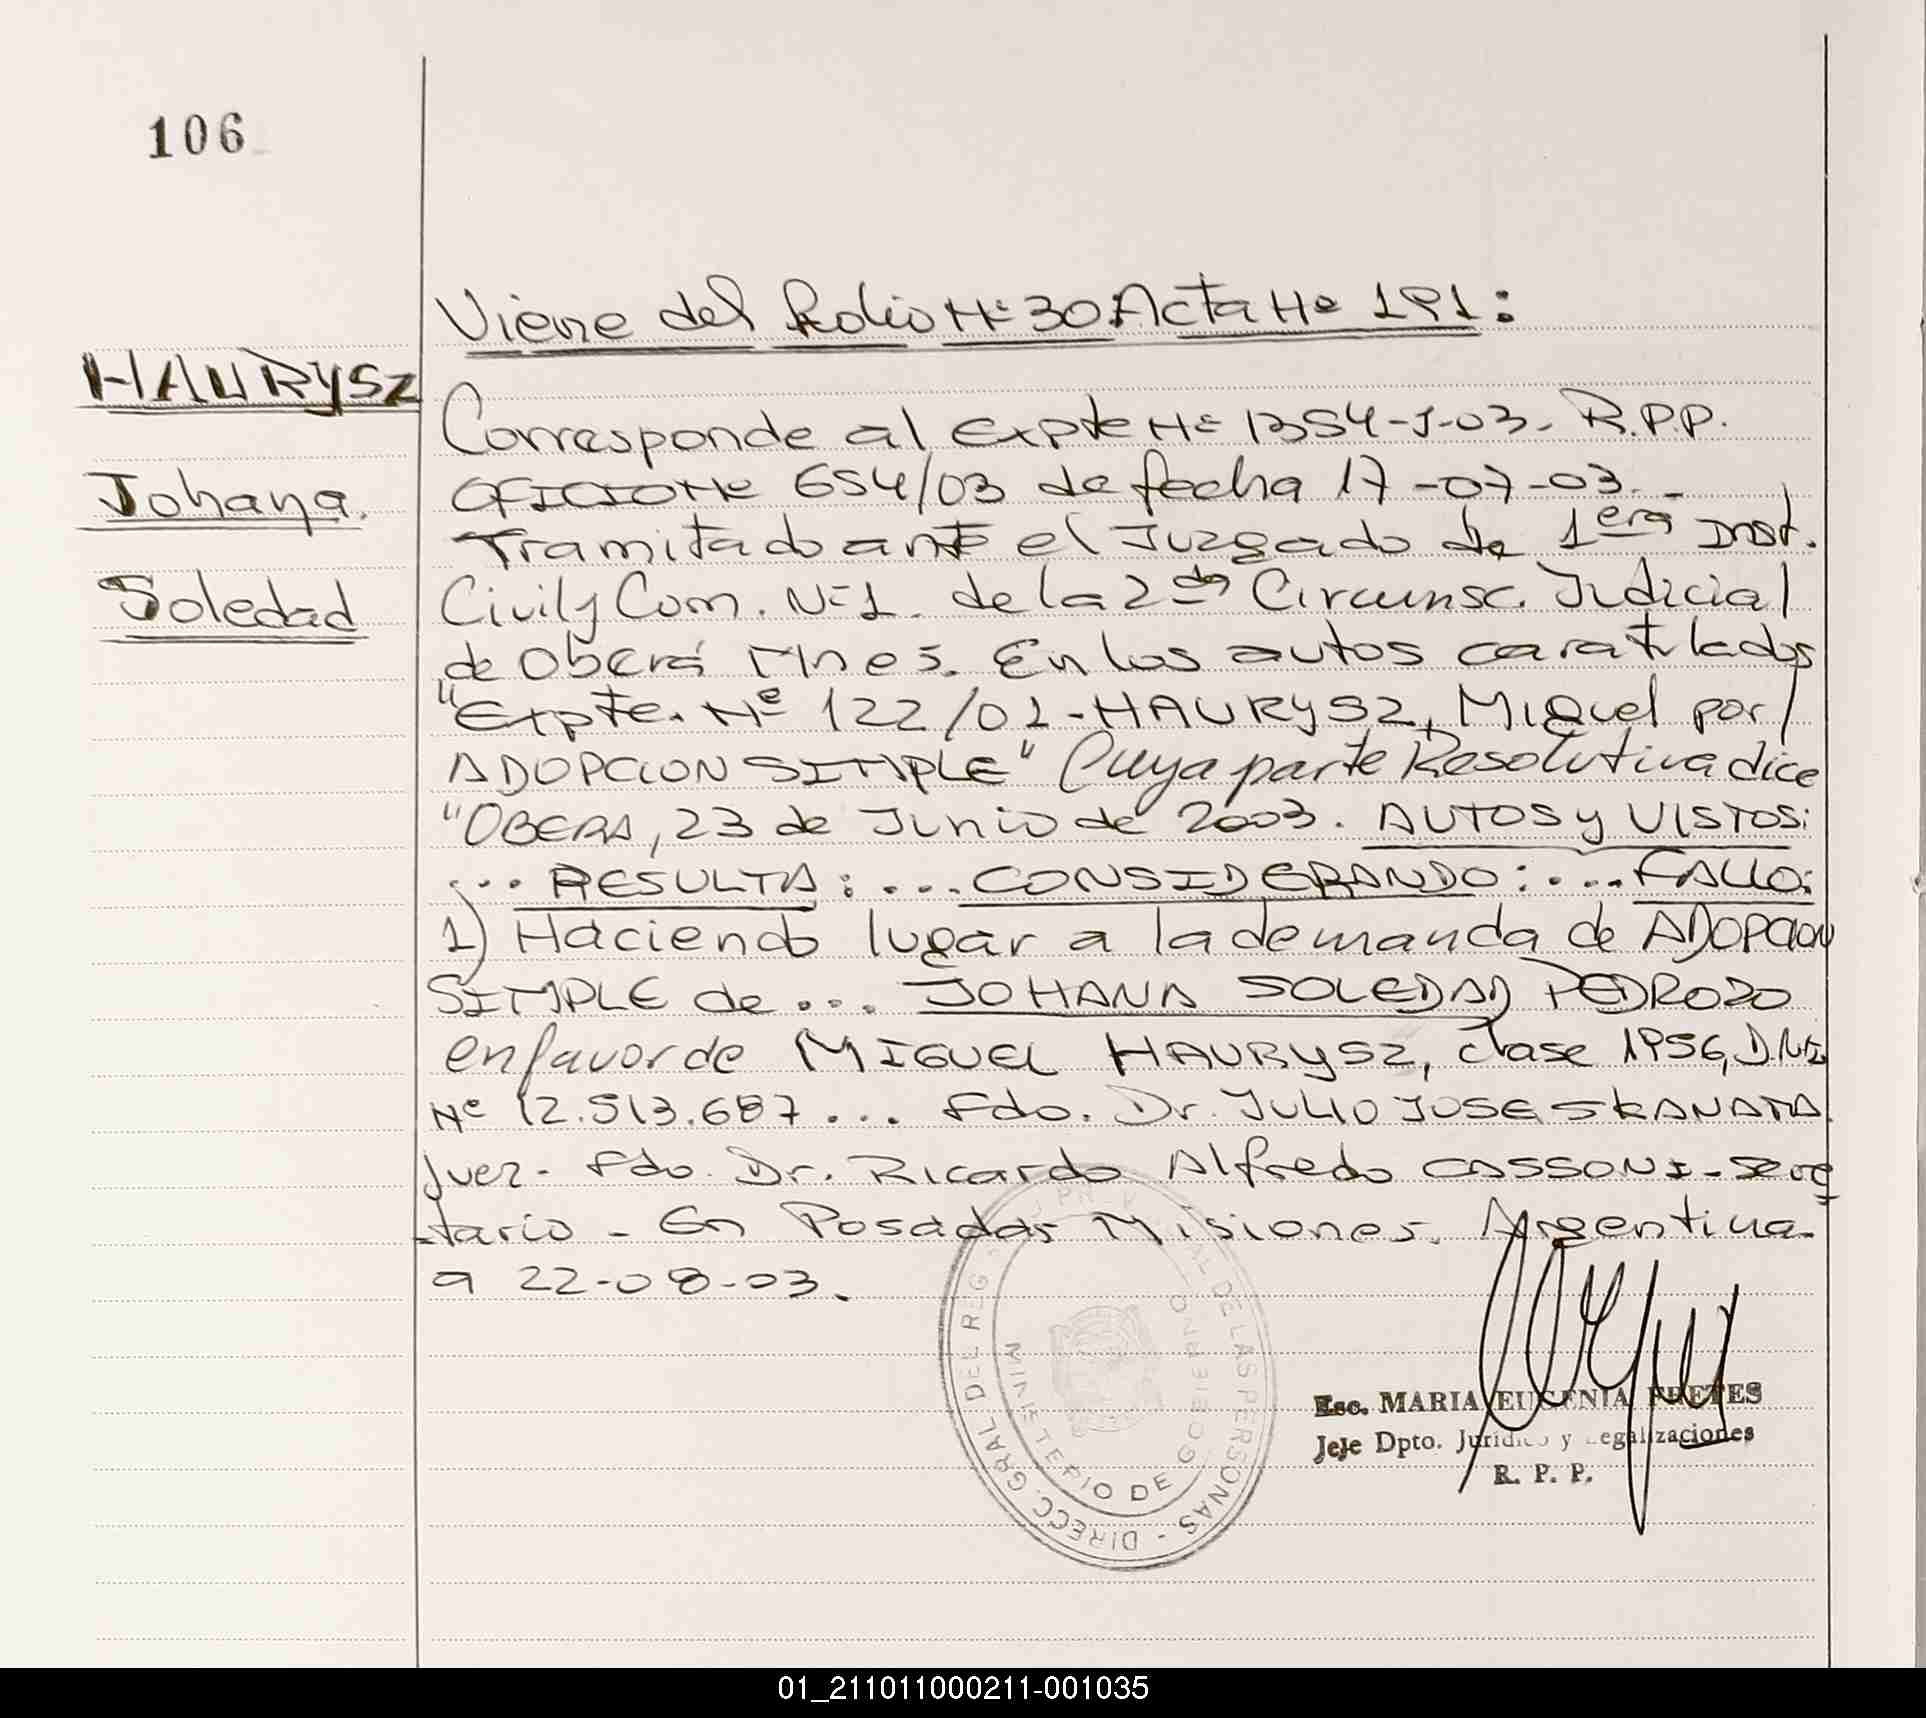 106
HAURYSZ
Johana.
Soledad
Viene del Folio Nº 30 Acta Nº 191:
Corresponde al Expte Nº 1354-J-03- R.P.P.
OFICIO Nº 654/03 de fecha 17-07-03.-
Tramitado ante el Juzgado de 1era Inst.
Civil y Com. Nº1. de la 2da Circunsc. Judicial
de Oberá Mnes. En los autos caratulados
"Expte. Nº 122/01-HAURYSZ, Miguel por/
ADOPCION SIMPLE" Cuya parte Resolutiva dice
"OBERA, 23 de Junio de 2003. AUTOS y VISTOS:
... RESULTA: ... CONSIDERANDO: ... FALLO:
1) Haciendo lugar a la demanda de ADOPCION
SIMPLE de ... JOHANA SOLEDAD PEDROZO
en favor de MIGUEL HAURYSZ, clase 1956, D.N.I.
Nº 12.513.687 ... Fdo. Dr. JULIO JOSE SKANATA
Juez- Fdo. Dr. Ricardo Alfredo CASSONI-Secre
-tario - En Posadas Misiones. Argentina.
a 22-08-03.
DIRECC. GRAL DEL REG. DE LAS PERSONAS -
MINISTERIO DE GOBIERNO
Esc. MARIA EUGENIA FRETES
Jefe Dpto. Jurídico y Legalizaciones
R. P. P.
01_211011000211-001035